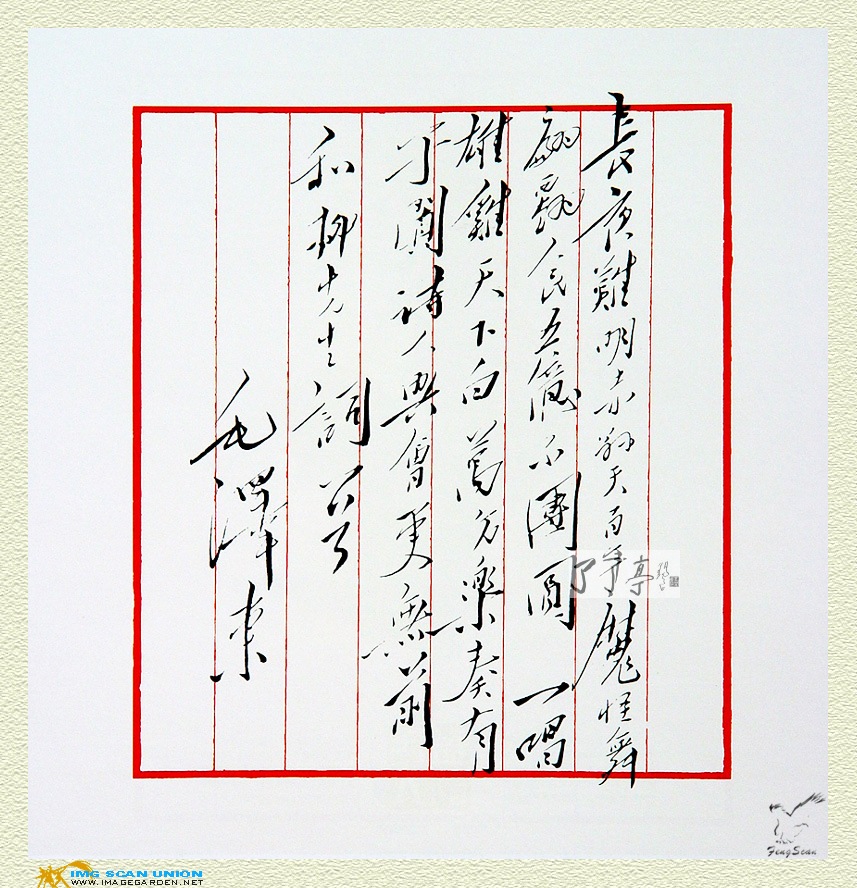 長夜難明赤縣天百年魔怪舞
翩躚人民五億不團圓一唱
雄雞天下白萬方樂奏有
于闐詩人興會更無前
和柳先生詞
毛澤東
FengScan
IMG SCAN UNION
WWW.IMAGEGARDEN.NET